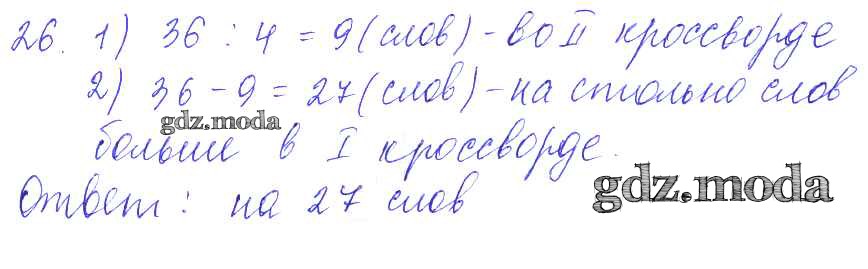 26. 1) 36 : 4 = 9 (слов) - во II кроссворде
2) 36 - 9 = 27 (слов) - на столько слов
gdz.moda
больше в I кроссворде.
Ответ: на 27 слов
gdz.moda